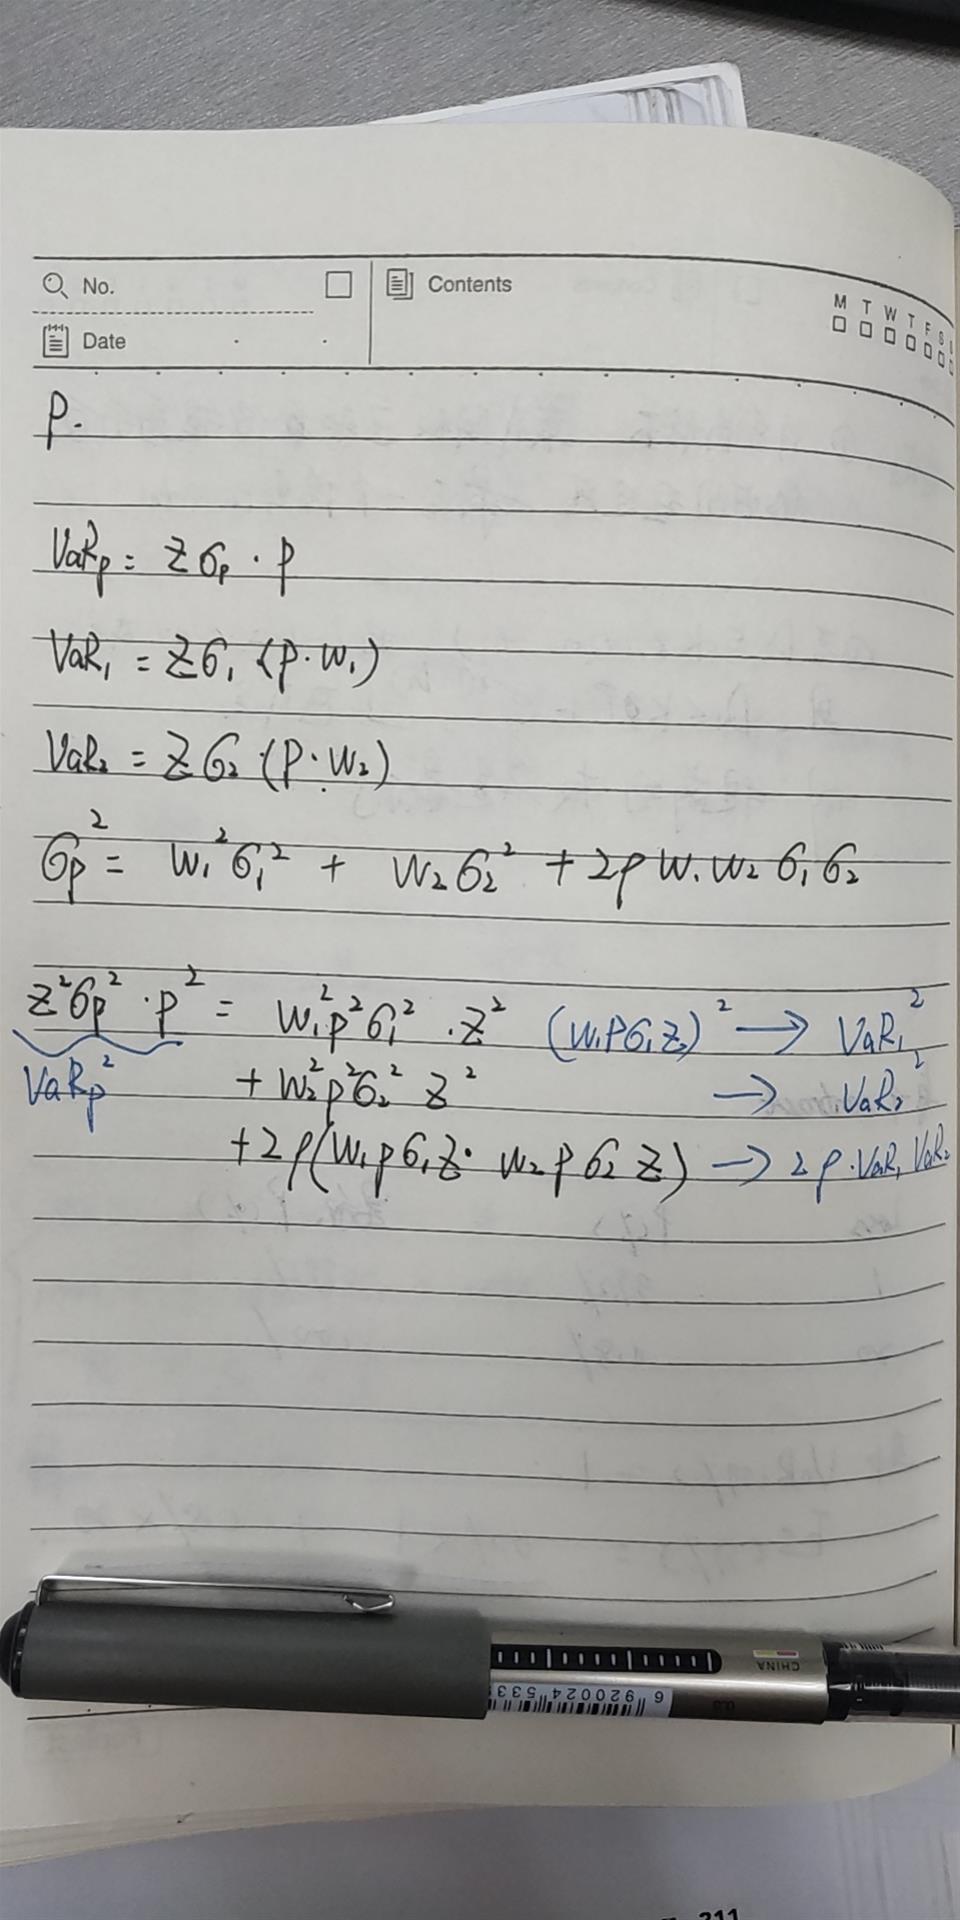 No.
Contents
M T W T F S S
Date
P.
VaRp = Zσp · P
VaR₁ = Zσ₁ (P·W₁)
VaR₂ = Zσ₂ (P·W₂)
σp² = W₁²σ₁² + W₂σ₂² + 2ρ W₁W₂ σ₁σ₂
Z²σp² · P² = W₁²P²σ₁² · Z² (W₁Pσ₁Z)² → VaR₁²
VaRp² + W₂²P²σ₂² Z² → VaR₂²
+2ρ(W₁Pσ₁Z · W₂Pσ₂Z) → 2ρ·VaR₁VaR₂
CHINA
6 920024 533
211